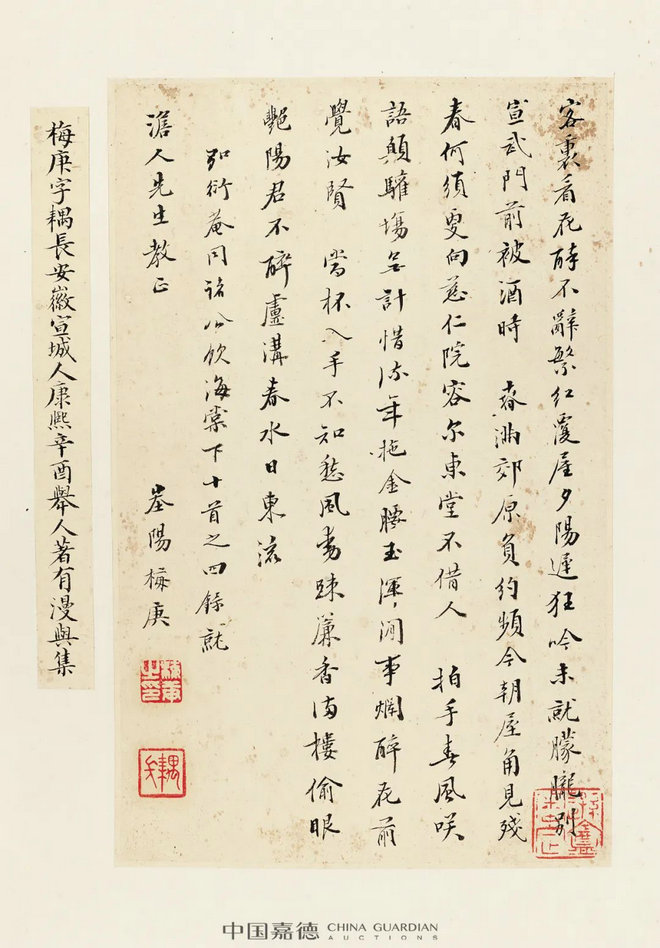 客裏看花醉不辭繁紅覆屋夕陽遲狂吟未就朦朧別
宣武門前被酒時 春滿郊原負約頻今朝屋角見殘
春何須更向慈仁院容尔東堂不借人 拍手春風咲
語顛驩塲無計惜流年拖金腰玉渾閒事爛醉花前
覺汝賢 當杯入手不知愁風動踈簾香滿樓偷眼
艶陽君不醉盧溝春水日東流
弘衍菴同諸公飲海棠下十首之四錄就
澹人先生教正
峚陽梅庚
梅庚之印
耦
梅庚字耦長安徽宣城人康熙辛酉舉人著有漫與集
中国嘉德 CHINA GUARDIAN
AUCTIONS